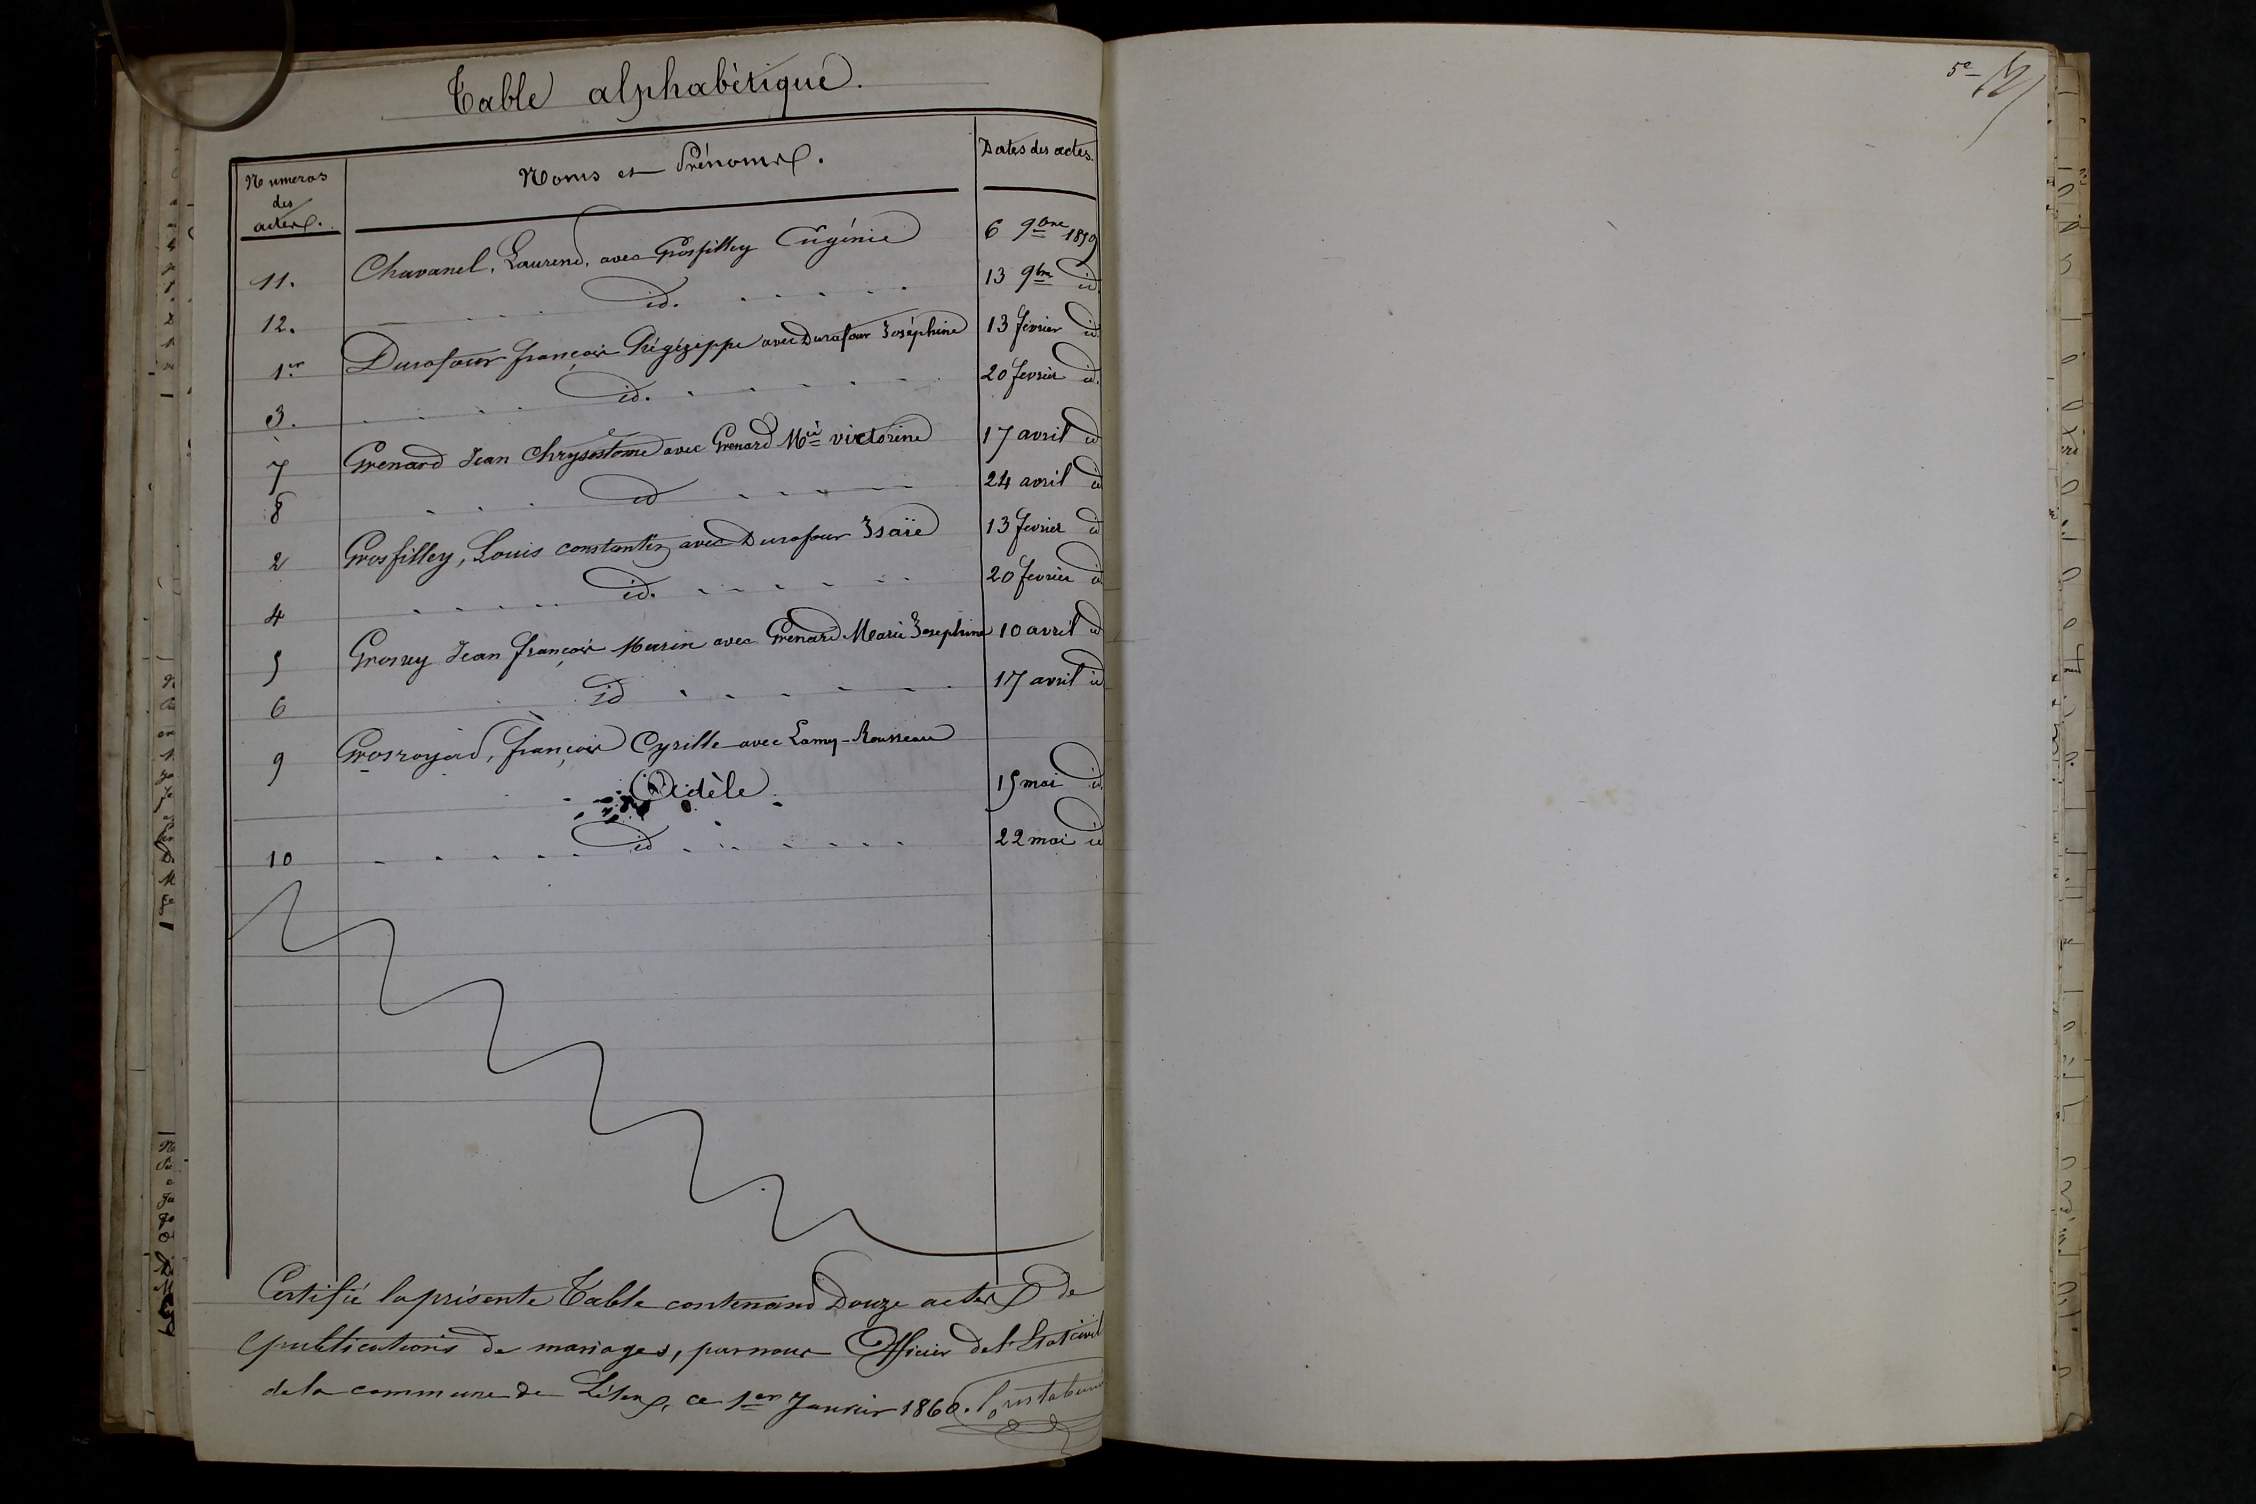 Table alphabétique.
Numeros des actes. Noms et Prénoms. Dates des actes.
11. Chavanel, Laurend, avec Grosfilley Eugénie 6 9bre 1859
12. id. 13 9bre id.
1er Durafour françois Hégézeppe avec Durafour Joséphine 13 février id.
3. id. 20 fevrier id.
7 Grenard Jean Chrysostome avec Grenard Mie victorine 17 avril id
8 id 24 avril id
2 Grosfilley, Louis constantin avec Durafour Isaïe 13 fevrier id
4 id. 20 fevrier id
5 Grosrey Jean françois Marin avec Grenard Marie Josephine 10 avril id
6 id 17 avril id
9 Grosroyard, françois Cyrille avec Lamy-Rousseau
Adèle 15 mai id.
10 id 22 mai id
Certifié la présente Table contenand Douze actes de
publications de mariages, par nous Officier de l'Etat civil
de la commune de ce 1er Janvier 1860.
5e